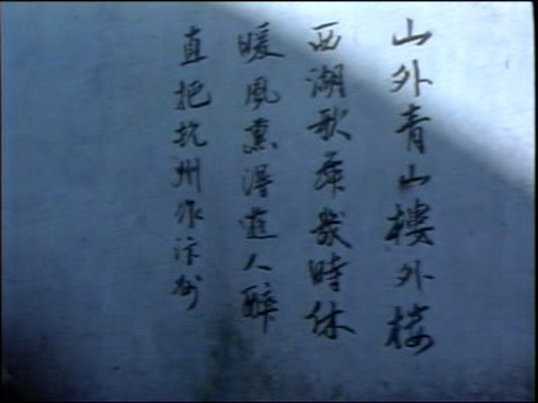 山外青山樓外楼
西湖歌舞幾時休
暖風熏得遊人醉
直把杭州作汴州